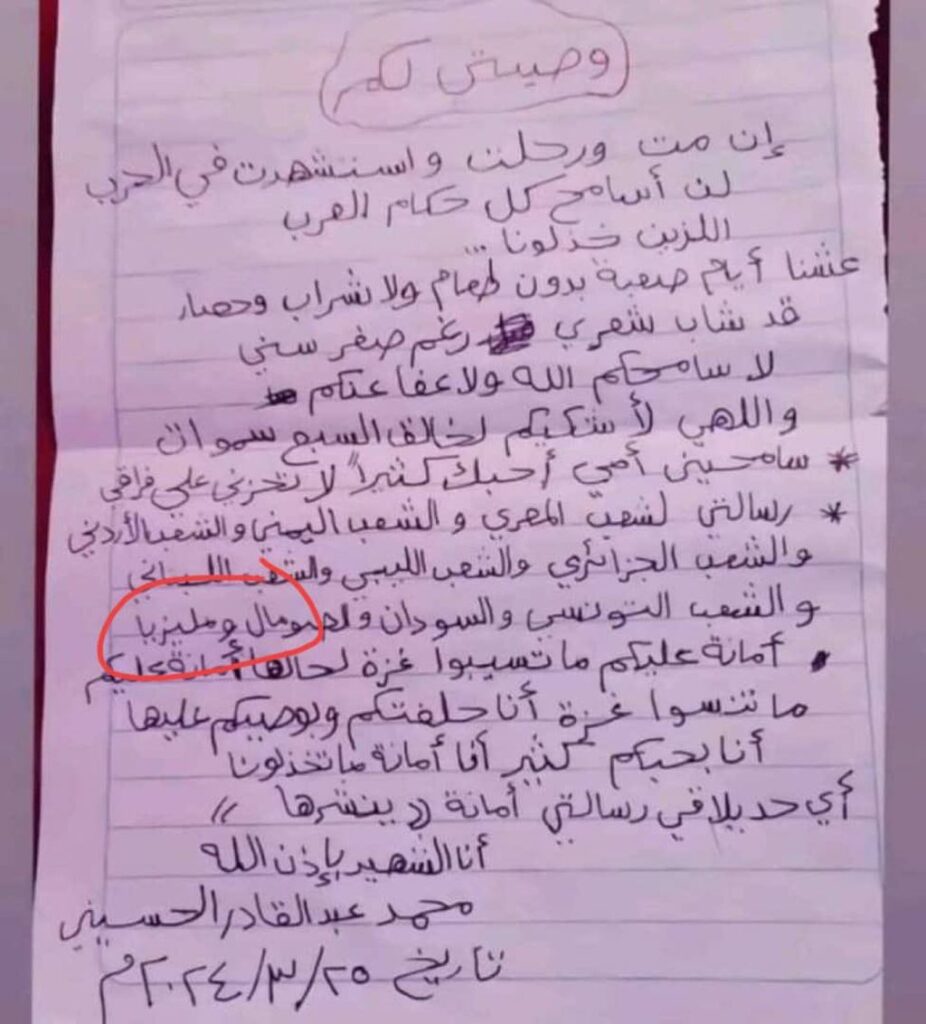 وصيتي لكم
إن مت ورحلت واستشهدت في الحرب
لن أسامح كل حكام العرب
اللزين خذلونا ...
عشنا أيام صعبة بدون طعام ولا شراب وحصار
قد شاب شعري رغم صغر سني
لا سامحكم الله ولا عفا عنكم
واللهي لأشكيكم لخالق السبع سموات
* سامحيني أمي أحبك كثيراً لا تحزني علي فراقي
* رسالتي لشعب المصري و الشعب اليمني والشعب الأردني
والشعب الجزائري والشعب الليبي والشعب اللبناني
والشعب التونسي والسودان ولصومال ومليزيا
أمانة عليكم ما تسيبوا غزة لحالها أمانة عليكم
ما تنسوا غزة أنا حلفتكم وبوصيكم عليها
أنا بحبكم كثير أنا أمانة ما تخذلونا
أي حد يلاقي رسالتي أمانة (( ينشرها ))
أنا الشهيد بإذن الله
محمد عبد القادر الحسيني
تاريخ ٢٠٢٤/٣/٢٥م